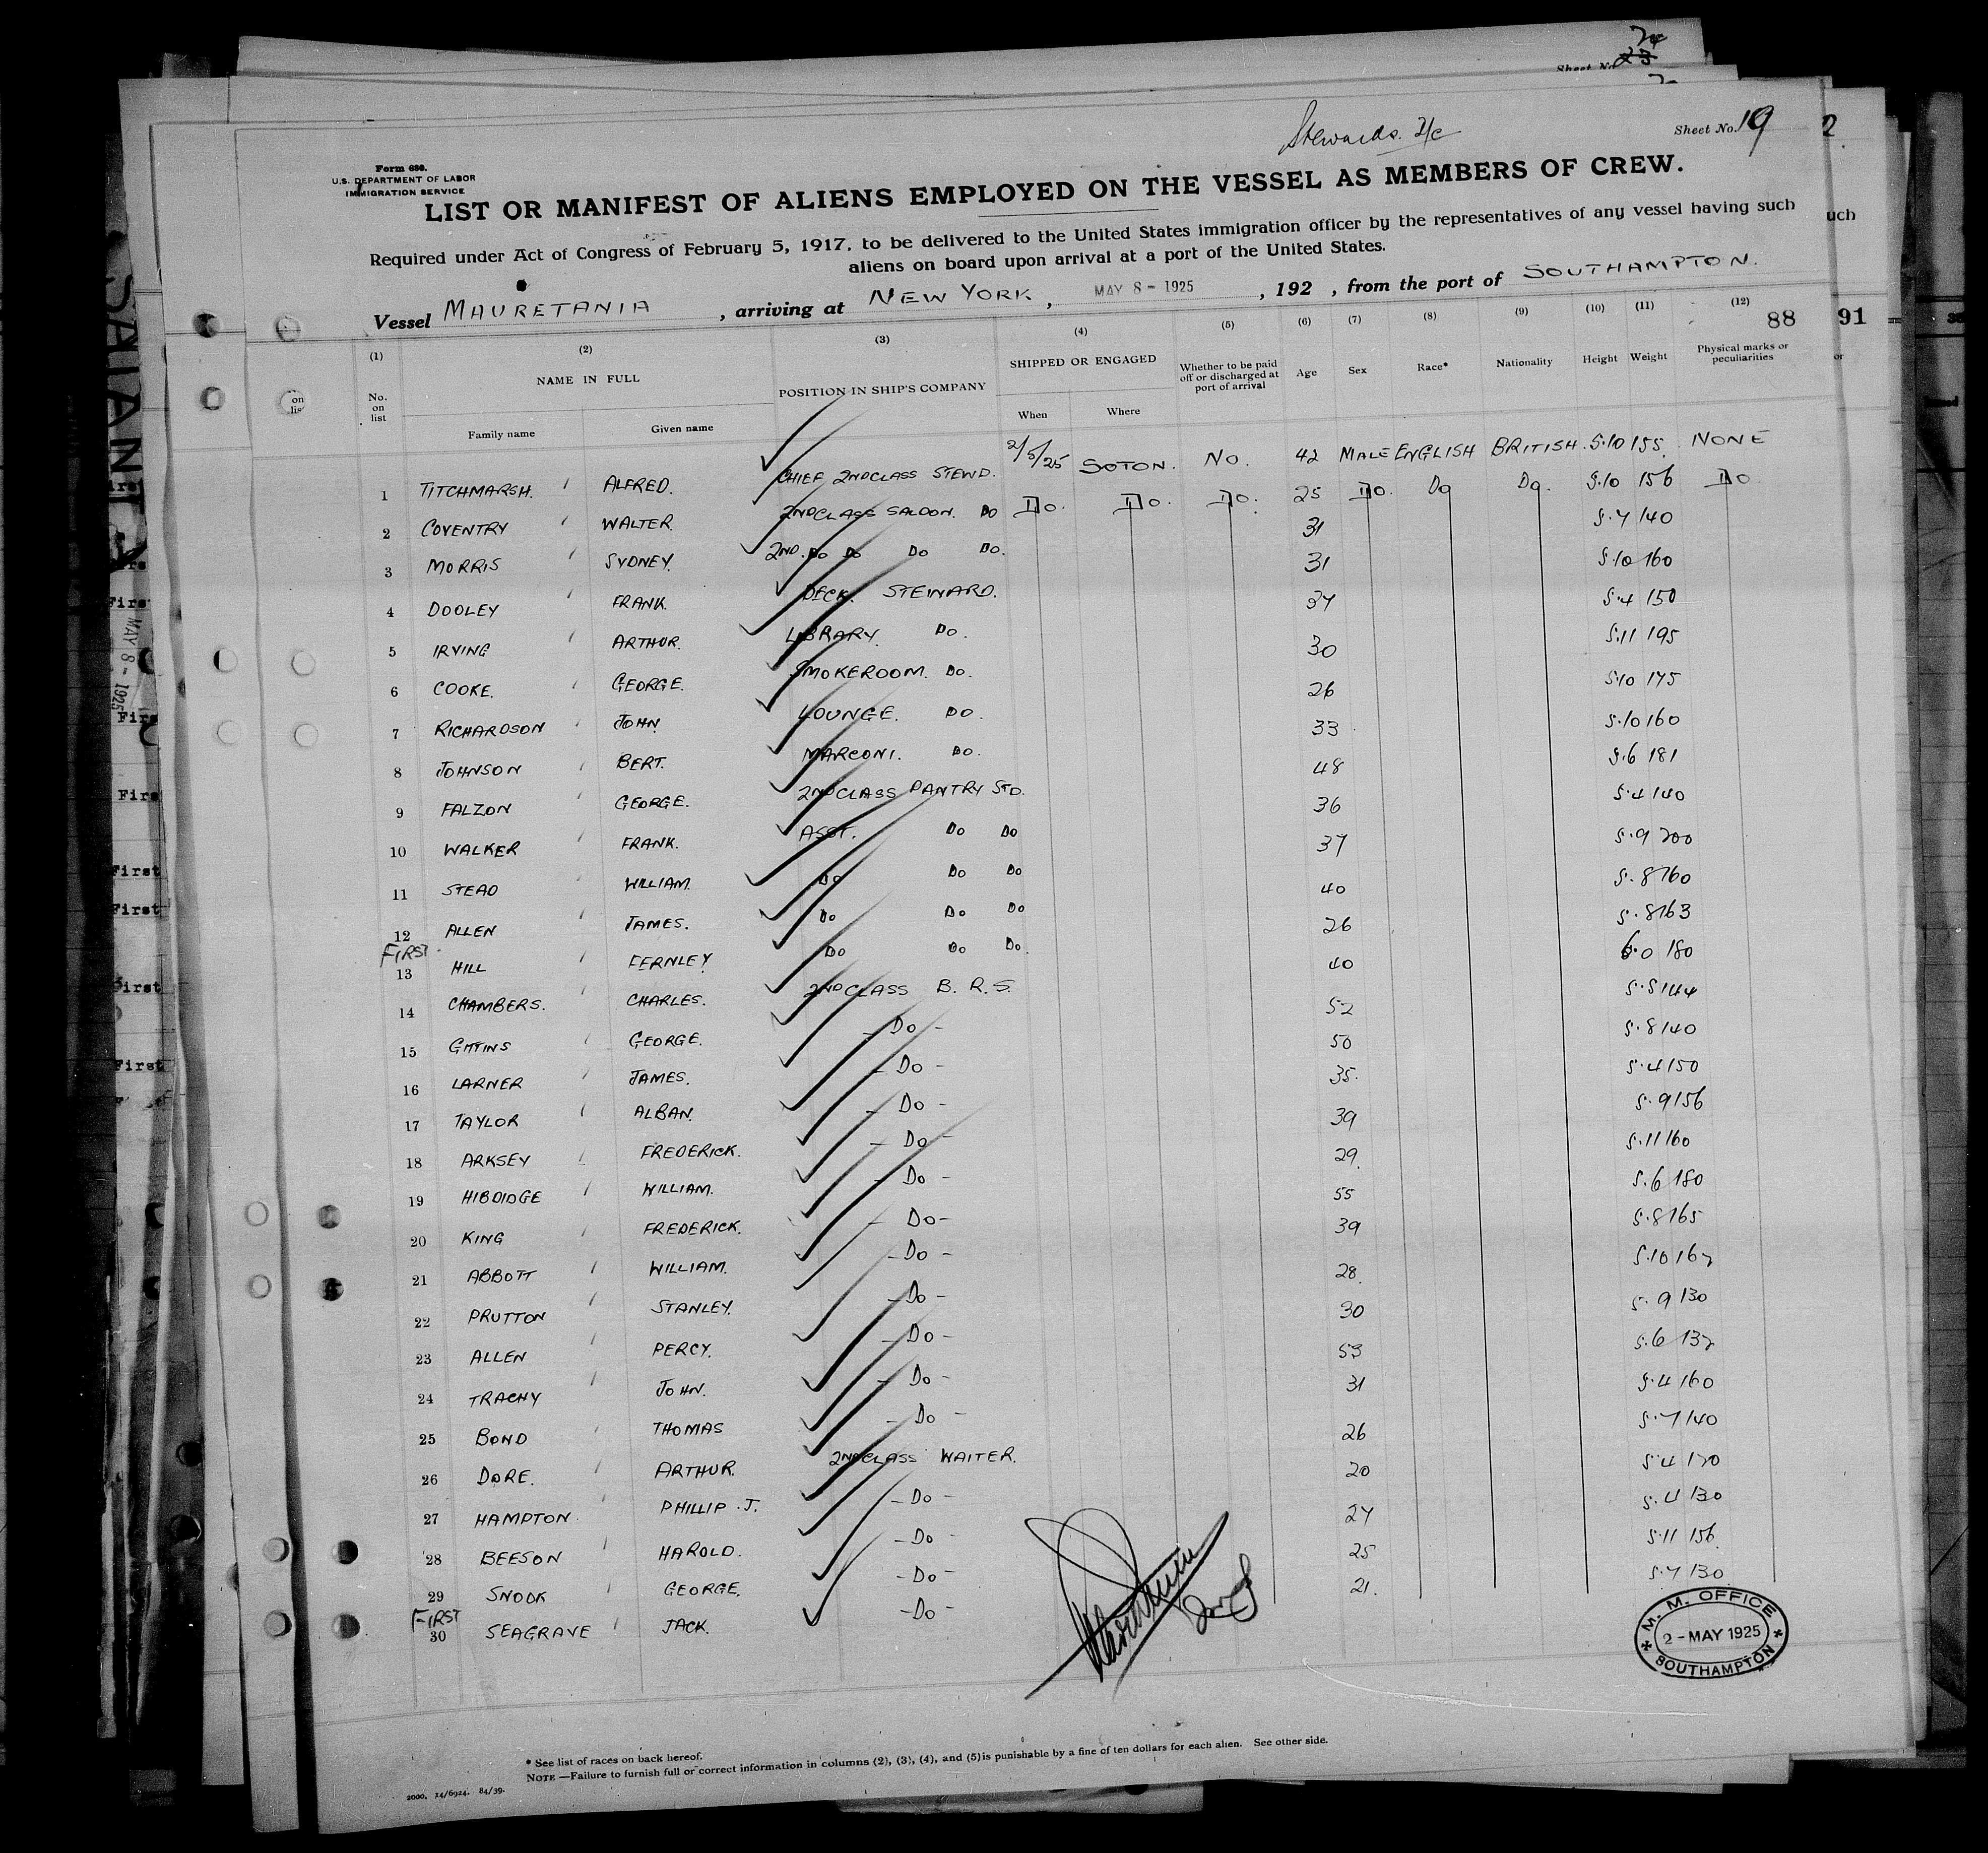 Sheet No. 23 24
Stewards. 2/c
Sheet No. 19
2
Form 680.
U.S. DEPARTMENT OF LABOR
IMMIGRATION SERVICE
LIST OR MANIFEST OF ALIENS EMPLOYED ON THE VESSEL AS MEMBERS OF CREW.
Required under Act of Congress of February 5, 1917, to be delivered to the United States immigration officer by the representatives of any vessel having such
uch
aliens on board upon arrival at a port of the United States.
Vessel MAURETANIA, arriving at NEW YORK, MAY 8 - 1925, 192 , from the port of SOUTHAMPTON.
88 91
(1) (2) (3) (4) (5) (6) (7) (8) (9) (10) (11) (12)
No. on list NAME IN FULL Family name Given name POSITION IN SHIP'S COMPANY SHIPPED OR ENGAGED When Where Whether to be paid off or discharged at port of arrival Age Sex Race* Nationality Height Weight Physical marks or peculiarities
1 TITCHMARSH. ALFRED. CHIEF 2ND CLASS STEWD. 2/5/25 SOTON. NO. 42 MALE ENGLISH BRITISH. 5.10 155. NONE
2 COVENTRY WALTER. 2ND CLASS SALOON. DO DO. DO. DO. 25 DO. DO DO. 5.10 156 DO
3 MORRIS SYDNEY. 2ND. DO DO DO DO. 31 5.7 140
4 DOOLEY FRANK. DECK. STEWARD. 31 5.10 160
5 IRVING ARTHUR. LIBRARY. DO. 37 5.4 150
6 COOKE. GEORGE. SMOKEROOM. DO. 30 5.11 195
7 RICHARDSON JOHN LOUNGE. DO. 26 5.10 175
8 JOHNSON BERT. MARCONI. DO. 33 5.10 160
9 FALZON GEORGE. 2ND CLASS PANTRY STD. 48 5.6 181
10 WALKER FRANK. ASST. DO DO 36 5.4 140
11 STEAD WILLIAM. DO DO DO 37 5.9 200
12 ALLEN JAMES. DO DO DO 40 5.8 160
FIRST
13 HILL FERNLEY DO DO DO. 26 5.8 163
14 CHAMBERS. CHARLES. 2ND CLASS B. R. S. 40 6.0 180
15 GITTINS GEORGE. - DO - 52 5.5 144
16 LARNER JAMES. - DO - 50 5.8 140
17 TAYLOR ALBAN. - DO - 35. 5.4 150
18 ARKSEY FREDERICK. - DO - 39 5.9 156
19 HIBDIDGE WILLIAM. - DO - 29. 5.11 160
20 KING FREDERICK. - DO - 55 5.6 180
21 ABBOTT WILLIAM. - DO - 39 5.8 165
22 PRUTTON STANLEY. - DO - 28. 5.10 162
23 ALLEN PERCY. - DO - 30 5.9 130
24 TRACHY JOHN. - DO - 53 5.6 132
25 BOND THOMAS - DO - 31 5.4 160
26 DORE. ARTHUR. 2ND CLASS WAITER. 26 5.7 140
27 HAMPTON. PHILLIP. J. - DO - 20 5.4 120
28 BEESON HAROLD. - DO - 27 5.4 130
29 SNOOK GEORGE. - DO - 25 5.11 156
FIRST
30 SEAGRAVE JACK. - DO - 21. 5.7 130
M. M. OFFICE
2 - MAY 1925
SOUTHAMPTON
* See list of races on back hereof.
NOTE —Failure to furnish full or correct information in columns (2), (3), (4), and (5) is punishable by a fine of ten dollars for each alien. See other side.
2000. 14/6924. 84/39.